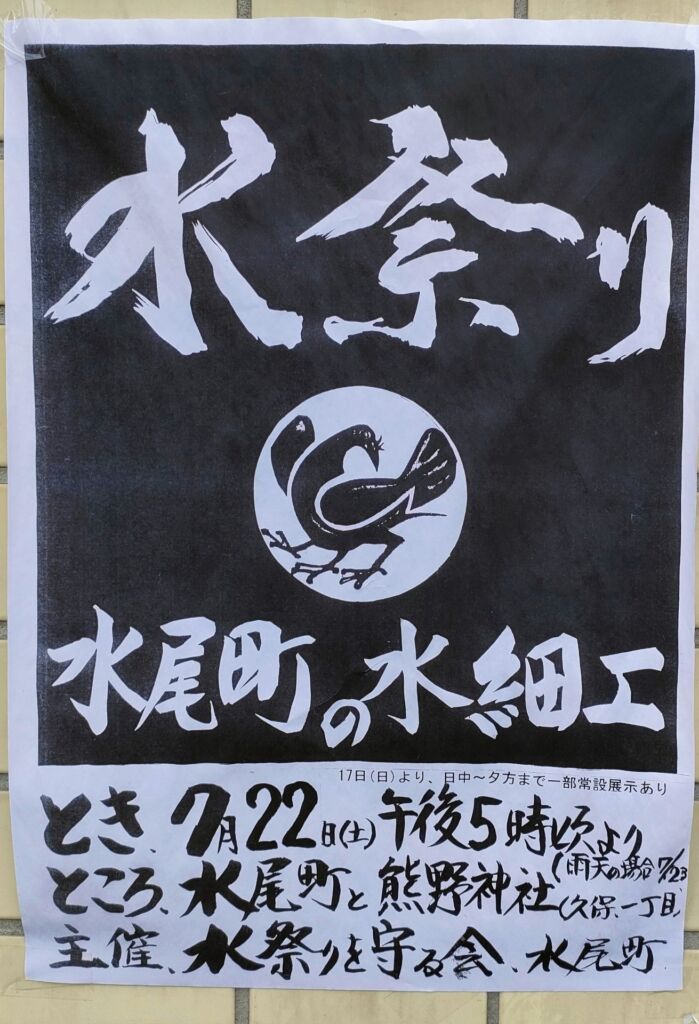 水祭り
水尾町の水細工
17日(日)より、日中～夕方まで一部常設展示あり
とき、7月22日(土)午後5時頃より
(雨天の場合7/23
ところ、水尾町と熊野神社
(久保、一丁目)
主催、水祭りを守る会、水尾町